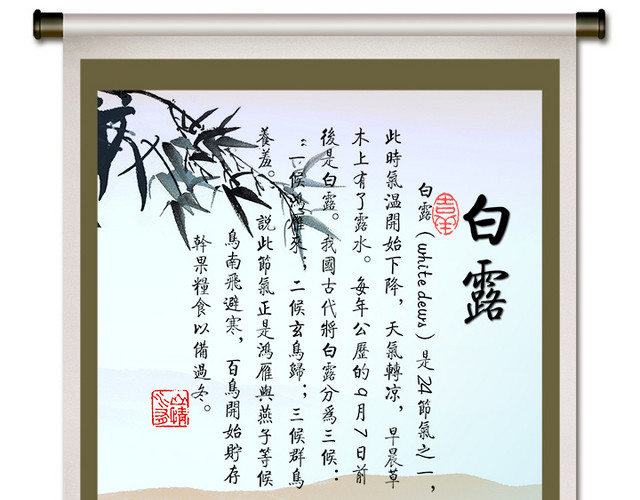 白露
吉羊
白露（white dews）是24節氣之一，
此時氣溫開始下降，天氣轉凉，早晨草
木上有了露水。每年公歷的9月7日前
後是白露。我國古代將白露分爲三候：
“一候鴻雁來；二候玄鳥歸；三候群鳥
養羞。”說此節氣正是鴻雁與燕子等候
鳥南飛避寒，百鳥開始貯存
幹果糧食以備過冬。